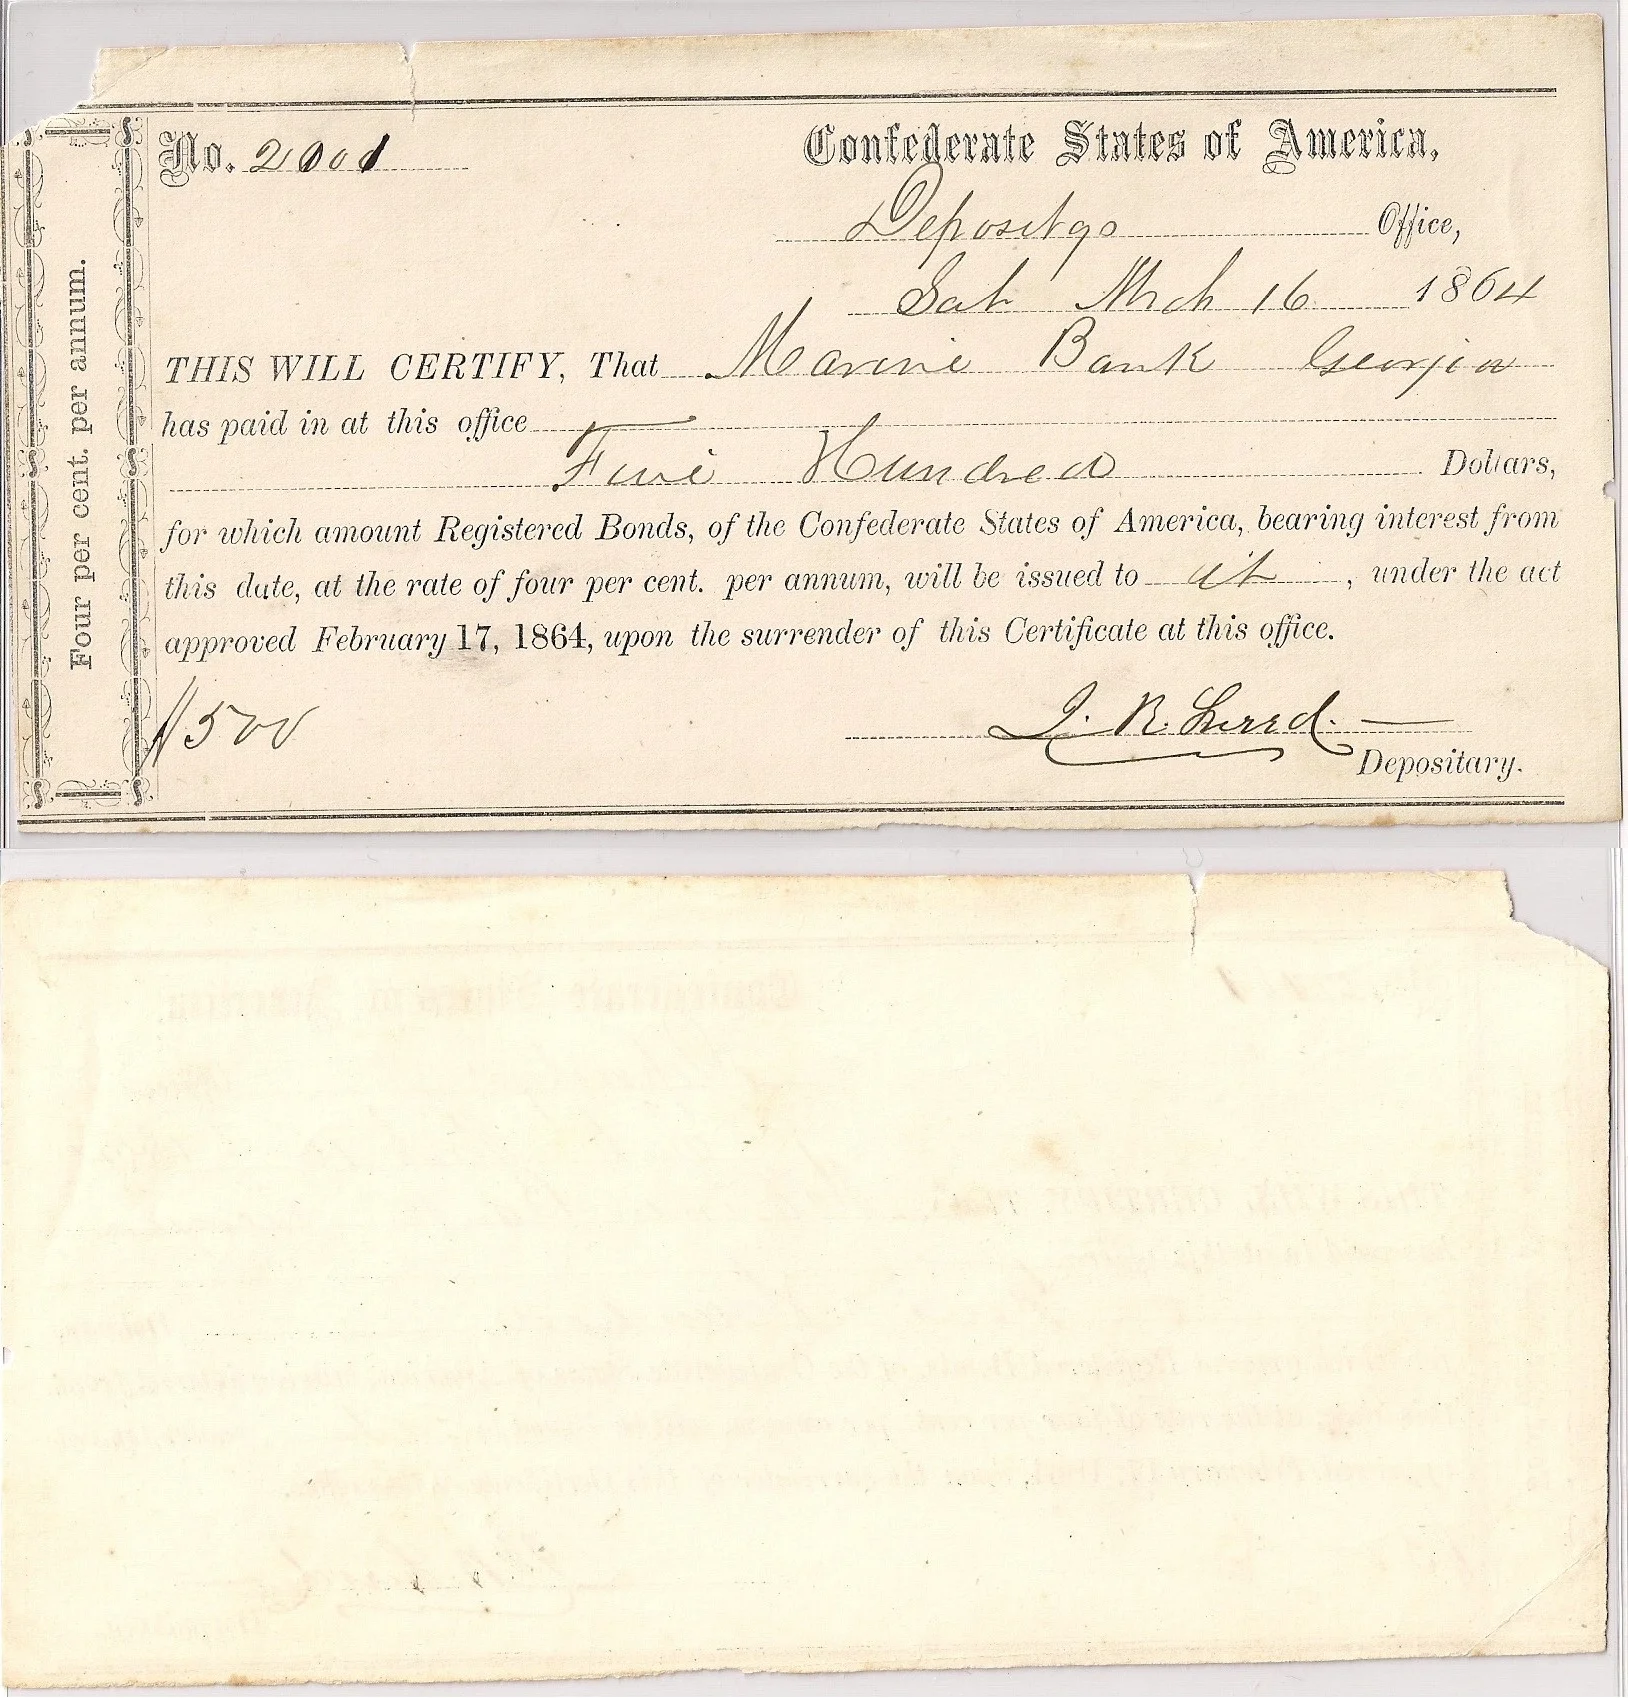 No. 2001
Confederate States of America,
Office,
Mrch 16 1864
THIS WILL CERTIFY, That Marine Bank Georgia
has paid in at this office
Five Hundred Dollars,
for which amount Registered Bonds, of the Confederate States of America, bearing interest from
this date, at the rate of four per cent. per annum, will be issued to it, under the act
approved February 17, 1864, upon the surrender of this Certificate at this office.
$500
Depositary.
Four per cent. per annum.